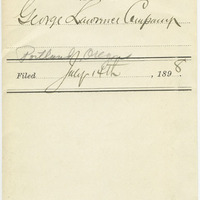 George Lawrence Company
Portland, Oregon
Filed July 14th, 1898.